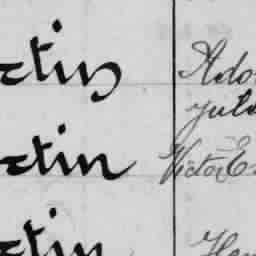 ctin Ado
Jul
ctin Victor E
ctin Hen